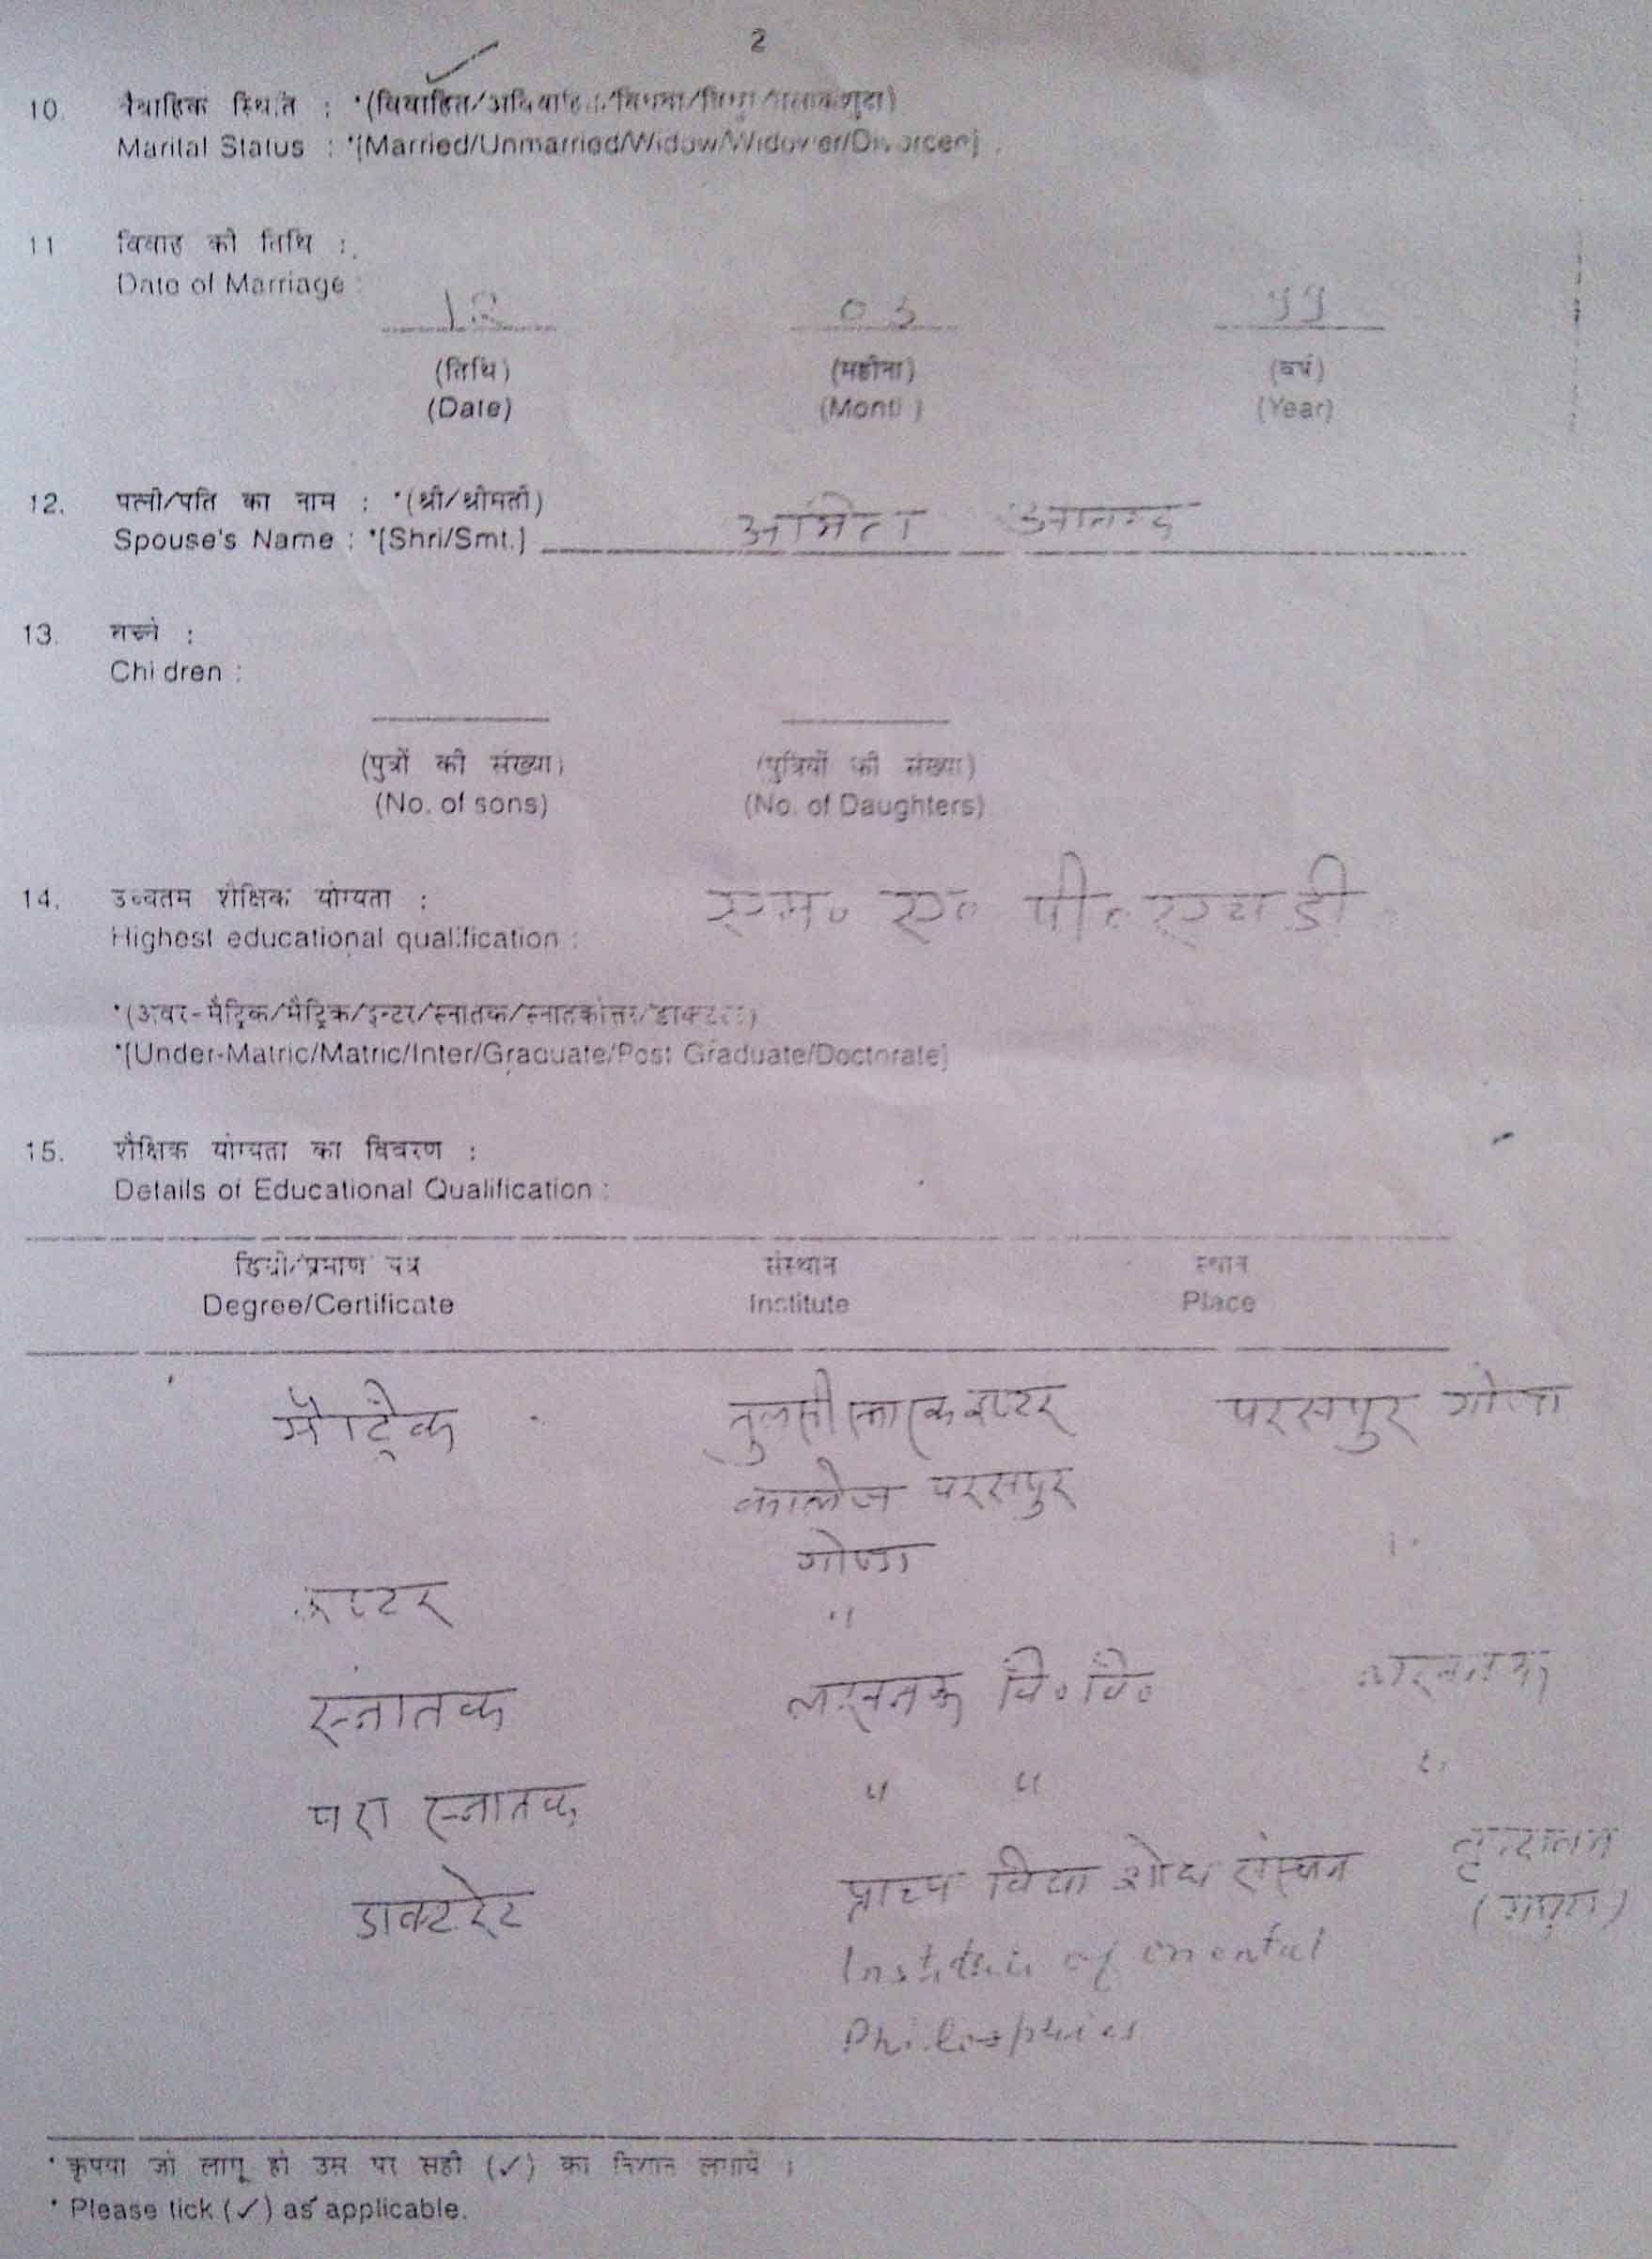 2
10. वैवाहिक स्थिति : *(विवाहित/अविवाहित/विधवा/विधुर/तलाकशुदा)
Marital Status : *[Married/Unmarried/Widow/Widower/Divorcee]
11 विवाह की तिथि :
Date of Marriage :
03
(तिथि) (महीना) (वर्ष)
(Date) (Month) (Year)
12. पत्नी/पति का नाम : *(श्री/श्रीमती)
Spouse's Name : *[Shri/Smt.] आनन्द
13. बच्चे :
Children :
(पुत्रों की संख्या) (पुत्रियों की संख्या)
(No. of sons) (No. of Daughters)
14. उच्चतम शैक्षिक योग्यता : एम० ए० पी० एच डी
Highest educational qualification :
*(अवर-मैट्रिक/मैट्रिक/इन्टर/स्नातक/स्नातकोत्तर/डाक्टरेट)
*[Under-Matric/Matric/Inter/Graduate/Post Graduate/Doctorate]
15. शैक्षिक योग्यता का विवरण :
Details of Educational Qualification :
डिग्री/प्रमाण पत्र संस्थान स्थान
Degree/Certificate Institute Place
मैट्रिक तुलसी स्मारक इण्टर परसपुर गोण्डा
कालेज परसपुर
गोण्डा
इण्टर "
स्नातक लखनऊ वि० वि० लखनऊ
परा स्नातक " " "
डाक्टरेट प्राच्य विद्या शोध संस्थान वृन्दावन
(मथुरा)
Institute of oriental
Philosophies
* कृपया जो लागू हो उस पर सही (✓) का निशान लगायें ।
* Please tick (✓) as applicable.